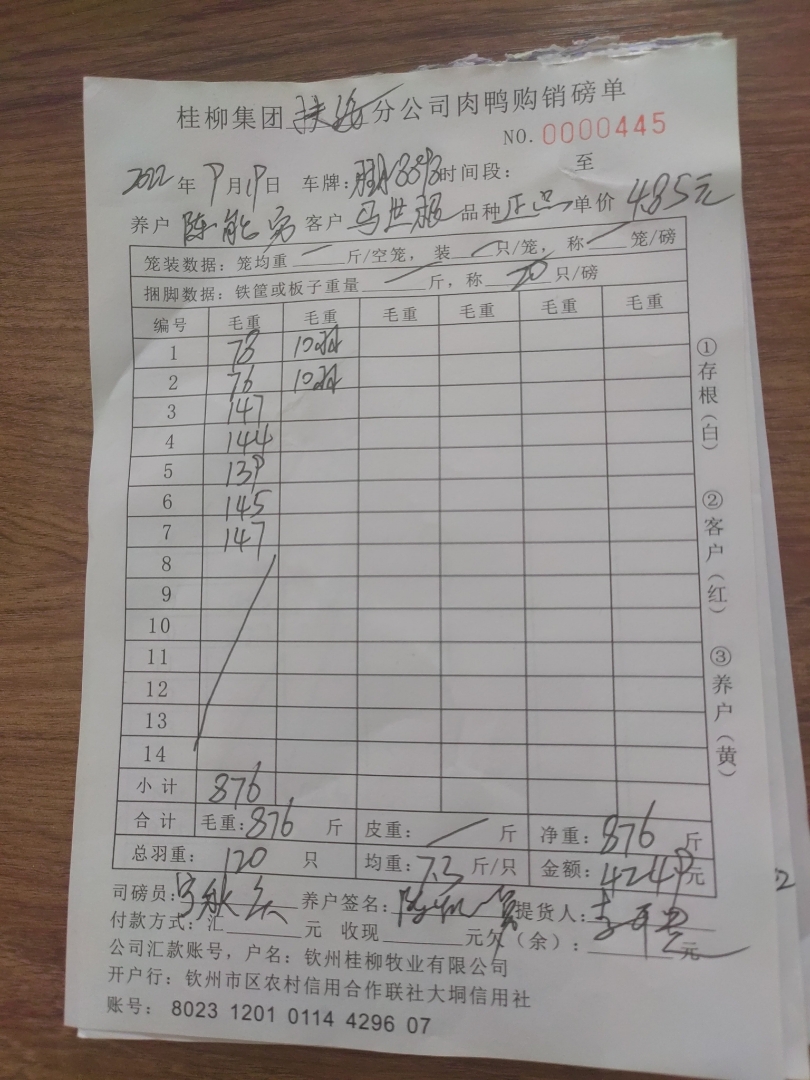 桂柳集团扶绥分公司肉鸭购销磅单
NO. 0000445
2022年9月19日 车牌: 时间段: 至
养户 陈能 客户 马世 品种 正品 单价 4.85元
笼装数据: 笼均重 — 斤/空笼, 装 — 只/笼, 称 — 笼/磅
捆脚数据: 铁筐或板子重量 — 斤, 称 20 只/磅
编号 毛重 毛重 毛重 毛重 毛重 毛重
1 78 10羽
2 76 10羽
3 147
4 144
5 139
6 145
7 147
8
9
10
11
12
13
14
小计 876
合计 毛重: 876 斤 皮重: 斤 净重: 876 斤
总羽重: 120 只 均重: 7.3 斤/只 金额: 4249元
司磅员: 养户签名: 提货人:
付款方式: 汇 元 收现 元欠(余): 元
公司汇款账号, 户名: 钦州桂柳牧业有限公司
开户行: 钦州市区农村信用合作联社大垌信用社
账号: 8023 1201 0114 4296 07
①存根(白) ②客户(红) ③养户(黄)